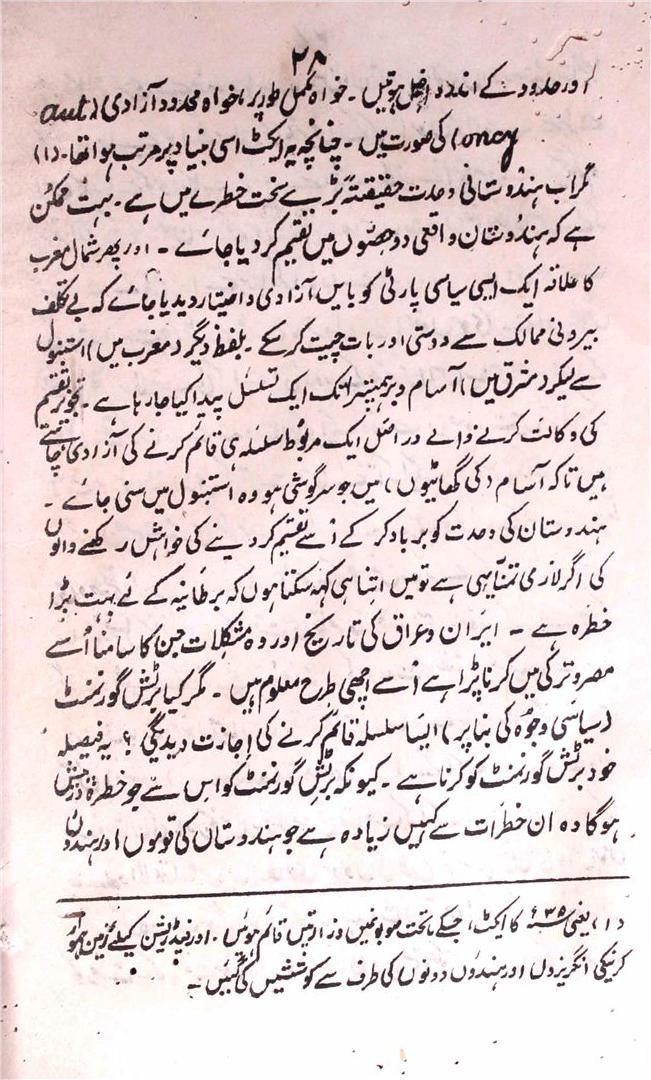 ۲۸
اور حدود کے اندر داخل ہوتیں ۔ خواہ مکمل طور پر، خواہ محدود آزادی (aut
onoy) کی صورت میں ۔ چنانچہ یہ ایکٹ اسی بنیاد پر مرتب ہوا تھا۔ (۱)
مگر اب ہندوستانی وحدت حقیقتہً بڑے سخت خطرے میں ہے ۔ بہت ممکن
ہے کہ ہندوستان واقعی دو حصوں میں تقسیم کر دیا جائے ۔ اور پھر شمال مغرب
کا علاقہ ایک ایسی سیاسی پارٹی کو بایں آزادی و اختیار دیدیا جائے کہ بے تکلف
بیرونی ممالک سے دوستی اور بات چیت کر سکے ۔ بلفظ دیگر (مغرب میں) استنبول
سے لیکر (مشرق میں) آسام تک ایک تسلسل پیدا کیا جا رہا ہے ۔ تجویز تقسیم
کی وکالت کرنے والے دراصل ایک مربوط سلسلہ ہی قائم کرنے کی آزادی چاہتے
ہیں تاکہ آسام (کی گھاٹیوں) میں جو سرگوشی ہو وہ استنبول میں سنی جائے ۔
ہندوستان کی وحدت کو برباد کر کے اُسے تقسیم کر دینے کی خواہش رکھنے والوں
کی اگر لازمی تمنا یہی ہے تو میں اتنا ہی کہہ سکتا ہوں کہ برطانیہ کے لئے بہت بڑا
خطرہ ہے ۔ ایران و عراق کی تاریخ اور وہ مشکلات جن کا سامنا اُسے
مصر و ترکی میں کرنا پڑا ہے اُسے اچھی طرح معلوم ہیں ۔ مگر کیا برٹش گورنمنٹ
(سیاسی وجوہ کی بنا پر) ایسا سلسلہ قائم کرنے کی اجازت دیدیگی ؟ یہ فیصلہ
خود برٹش گورنمنٹ کو کرنا ہے ۔ کیونکہ برٹش گورنمنٹ کو اس سے جو خطرہ درپیش
ہو گا وہ ان خطرات سے کہیں زیادہ ہے جو ہندوستان کی قوموں اور ہندوں
(۱) یعنی ۳۵ء کا ایکٹ، جسکے ماتحت صوبوں میں وزارتیں قائم ہوئیں ۔ اور فیڈریشن کیلئے زمین ہموار
کرنیکی انگریزوں اور ہندوں دونوں کی طرف سے کوششیں کی گئیں ۔